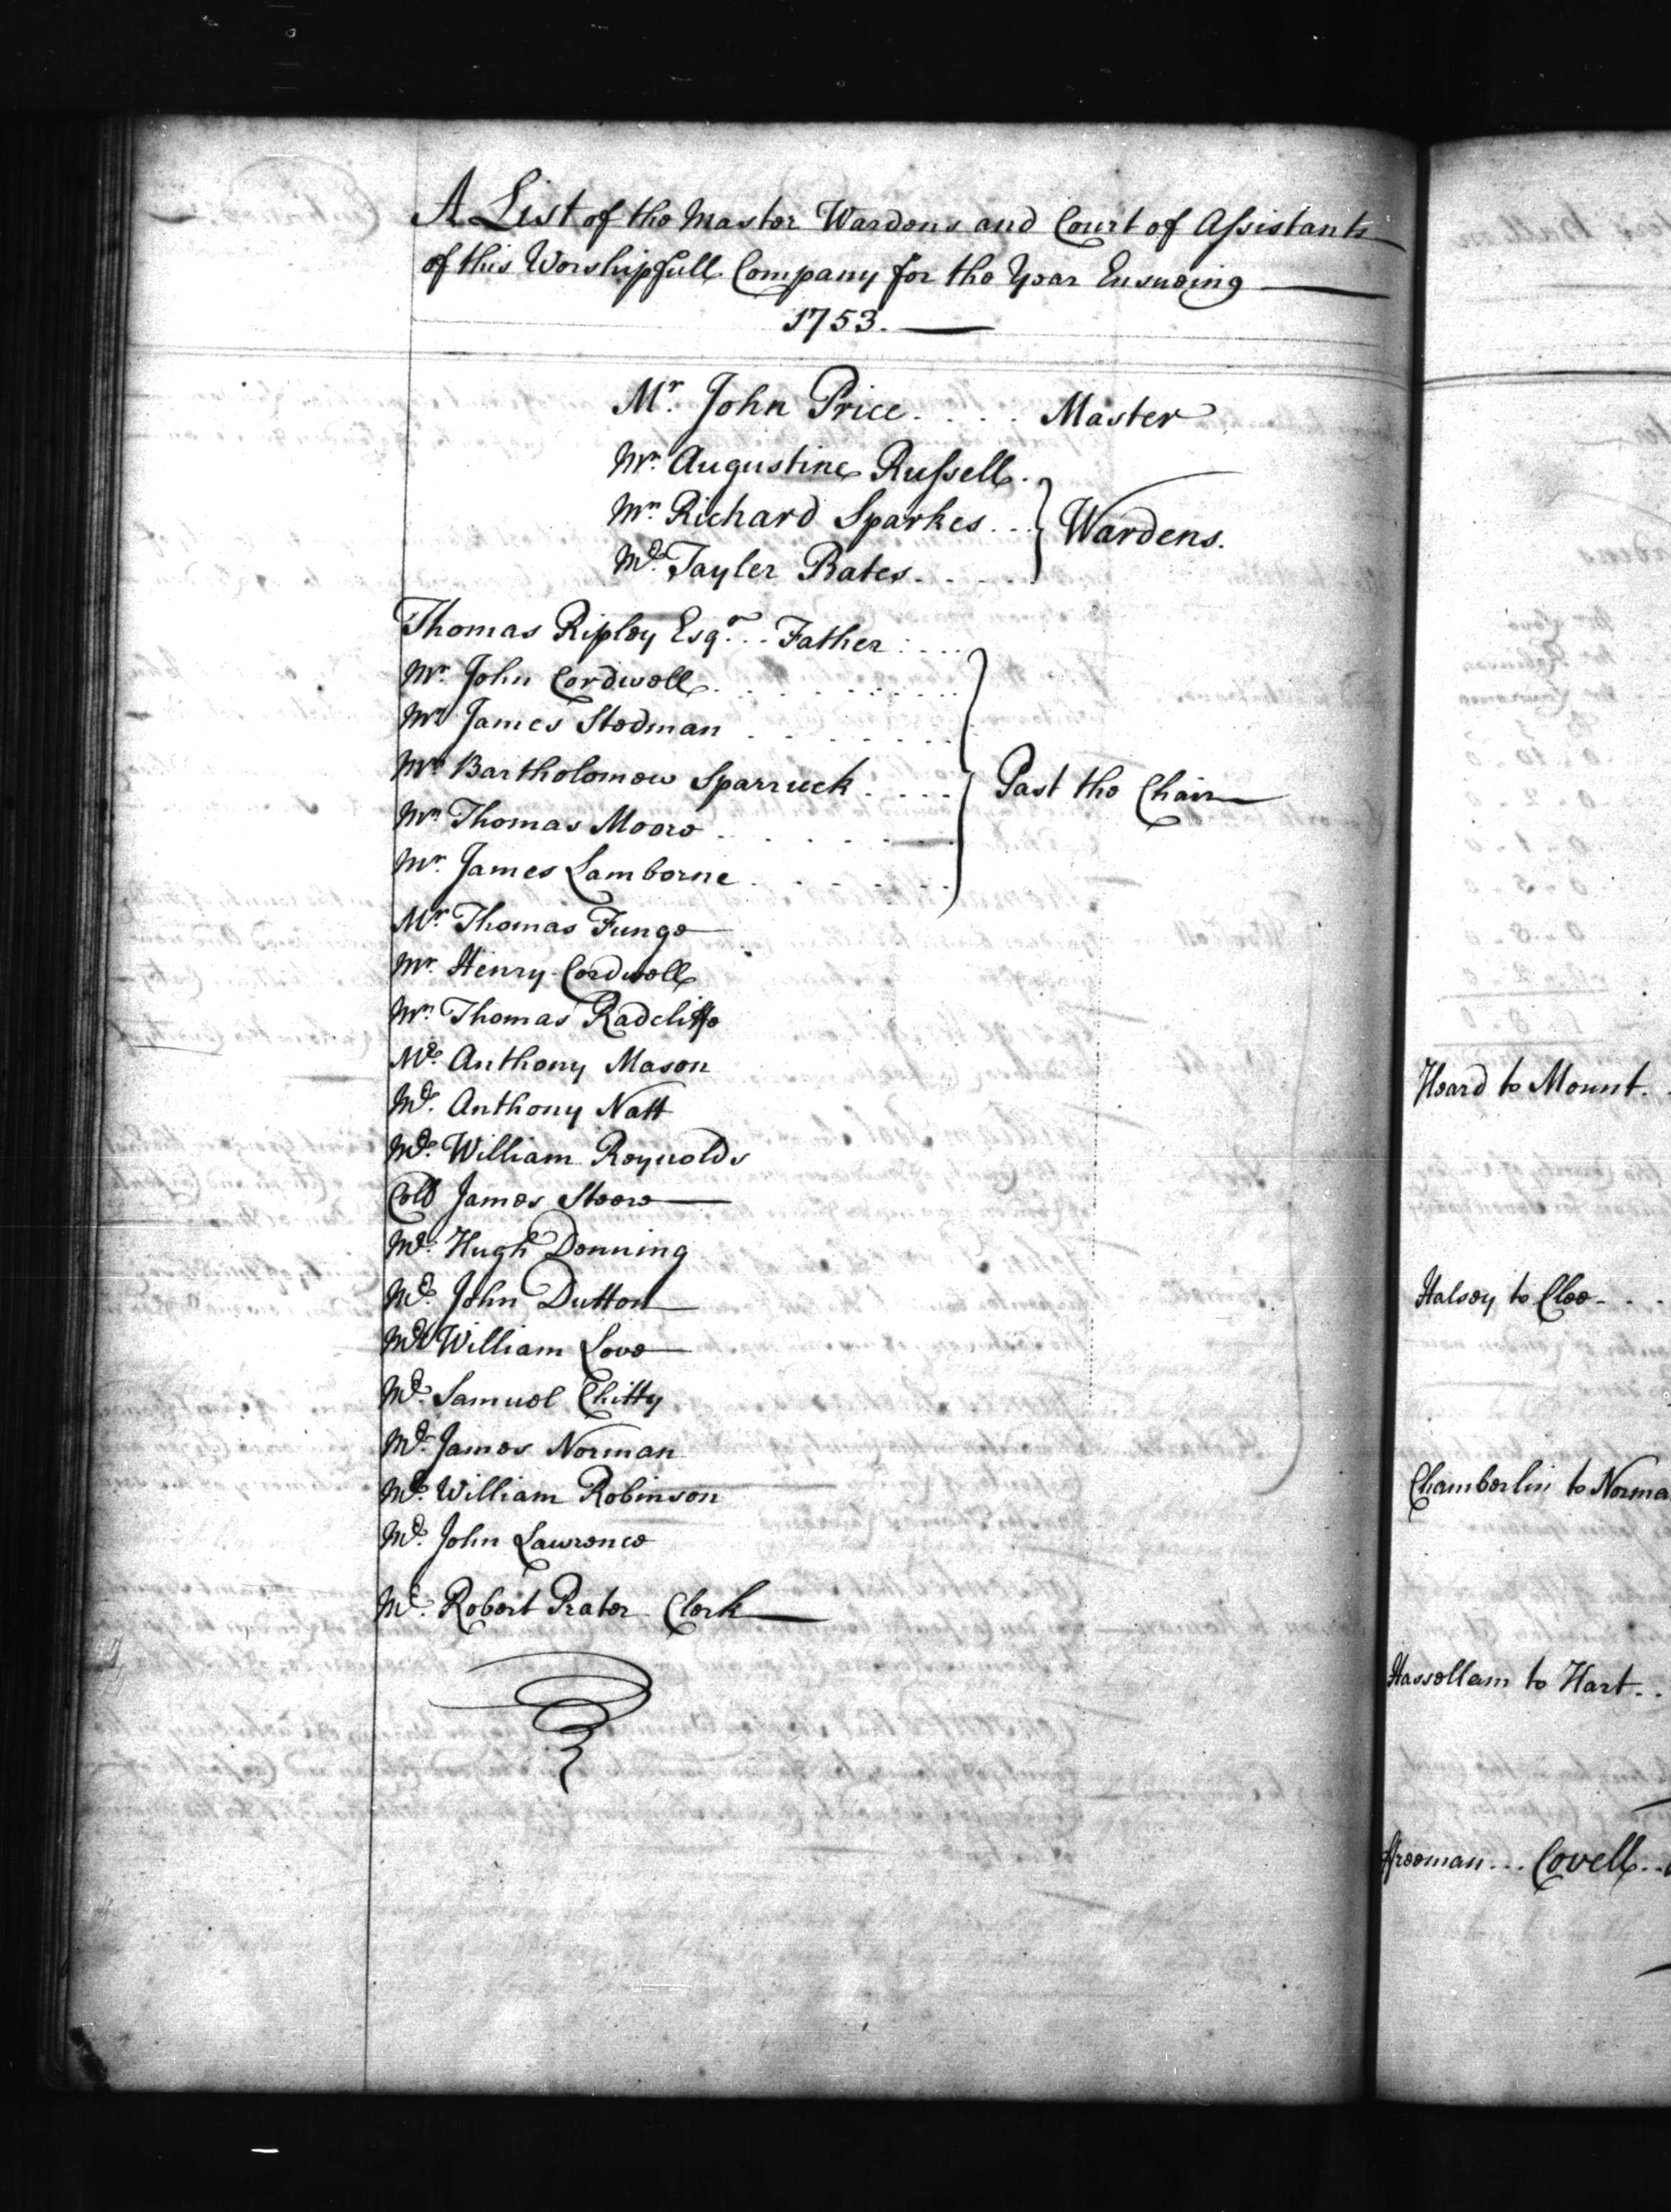 A List of the Master Wardens and Court of Assistants
of this Worshipfull Company for the Year Ensueing
1753.
Mr. John Price . . . . Master
Mr. Augustine Russell .
Mr. Richard Sparkes . . . Wardens.
Mr. Tayler Bates . . . .
Thomas Ripley Esqr. . . Father . . . .
Mr. John Cordwell . . . . . . . .
Mr. James Stedman . . . . . . .
Mr. Bartholomew Sparruck . . . . Past the Chair
Mr. Thomas Moore . . . . . .
Mr. James Lamborne . . . . . .
Mr. Thomas Funge
Mr. Henry Cordwell
Mr. Thomas Radcliffe
Mr. Anthony Mason
Mr. Anthony Natt
Mr. William Reynolds
Coll James Steere
Mr. Hugh Denning
Mr. John Dutton
Mr. William Love
Mr. Samuel Chitty
Mr. James Norman
Mr. William Robinson
Mr. John Lawrence
Mr. Robert Prater Clerk
Heard to Mount. .
Halsey to Clee . . .
Chamberlin to Norma
Hassellam to Hart . .
ffreeman . . . Covell . .